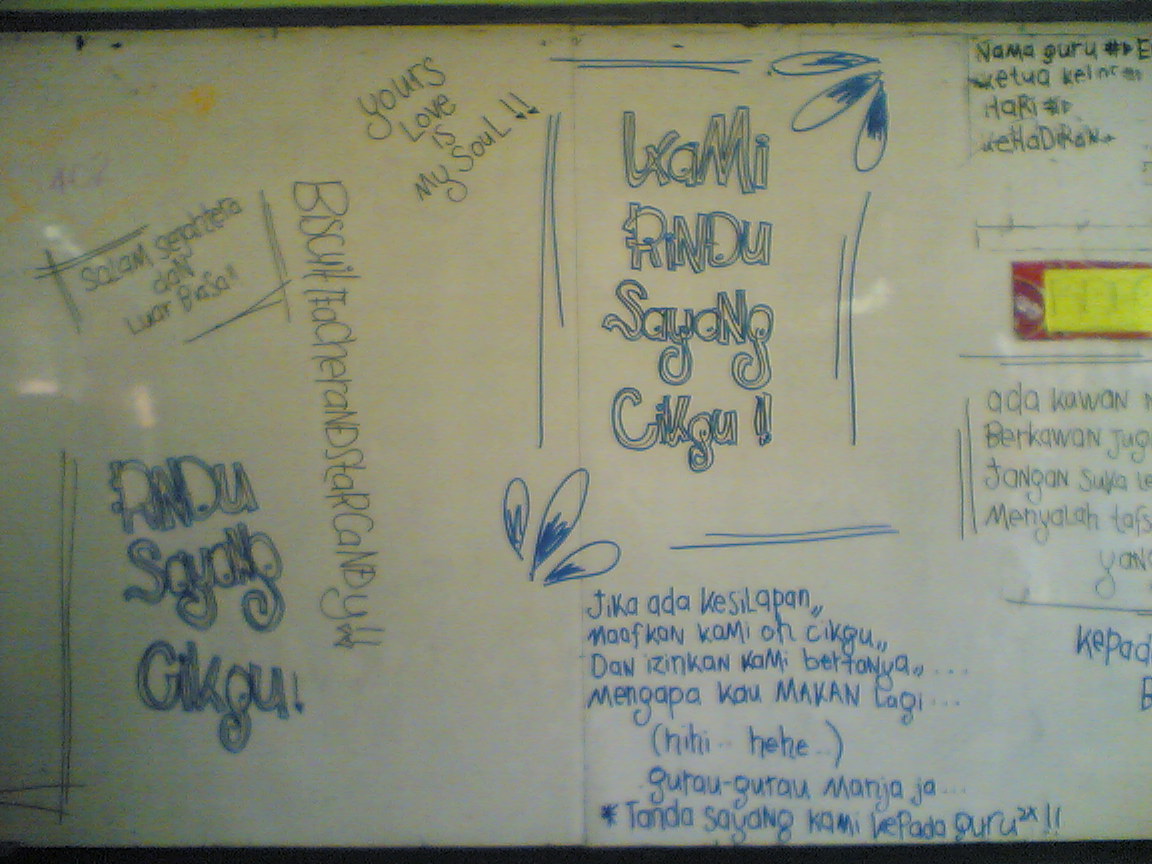 Yours
Love
is
My Soul !!
Salam Sejahtera
dan
Luar Biasa!!
BiscuitTacheranDstaRCaNDy!!
RiNDu
SayaNg
Cikgu!
KaMi
RiNDu
SayaNg
Cikgu !!
Jika ada kesilapan,,
Maafkan kaMi oh cikgu,,
Dan izinkan kaMi bertanya,, ....
Mengapa kau MAKAN lagi ...
(hihi .. hehe ..)
gurau-gurau Manja ja...
* Tanda sayang kami kepada guru2x !!
Nama guru
Ketua
HaRi
KeHaDiRaN
ada kawan
Berkawan
Jangan suka
Menyalah